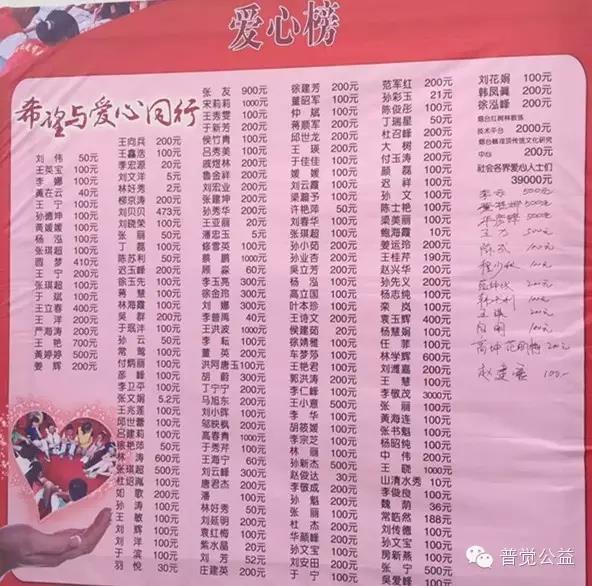 爱心榜
希望与爱心同行
刘 伟 50元
王英宝 100元
李 娜 100元
黄在云 40元
王 宁 100元
孙德坤 100元
黄媛媛 100元
杨 泓 100元
张琪超 100元
圆 梦 410元
王 宁 200元
张琪超 100元
于 斌 100元
王立春 400元
王 洋 200元
严海涛 200元
王 艳 700元
黄婷婷 500元
姜 辉 200元
王向兵 200元
王鑫浩 100元
李宏源 20元
刘文洋 5元
林好秀 2元
柳京涛 200元
刘贝贝 473元
刘晓荣 100元
张 丽 50元
丁 磊 100元
陈苏利 50元
迟玉峰 200元
徐玉先 100元
蒋 慧 100元
林海霞 100元
吴 群 200元
于珉洋 100元
孙 云 50元
常 莺 100元
付炳丽 100元
邵 峰 100元
李卫平 100元
张文娟 5.2元
王兆莲 100元
邱世蕾 100元
吕建莉 100元
徐艳萍 50元
林 涛 600元
张琪超 500元
杜昭胤 100元
如 歌 200元
孙 涛 100元
王 敏 100元
刘 辉 100元
刘 洋 100元
于 滨 100元
羽 悦 30元
张 友 900元
宋莉莉 1000元
王秀雯 100元
于新芳 200元
侯竹青 100元
吕秀美 100元
戚煜林 200元
鲁金祥 200元
刘宏业 200元
张建坤 200元
孙秀华 200元
王亚丽 20元
潘忠玉 5元
修雪英 100元
蔡 鹏 1000元
顾 淼 60元
李玉亮 300元
徐金珀 300元
刘 娜 300元
李普禹 40元
王洪波 1000元
李 耘 100元
董 英 200元
洪阿唐玉 100元
胡 蔚 300元
丁宁宁 200元
马旭东 200元
刘小晖 100元
邬映枫 200元
高春青 1000元
于芳芳 100元
王海宁 60元
刘云峰 300元
唐君杰 200元
潘 100元
林好秀 50元
刘延明 200元
袁红梅 100元
紫水晶 20元
刘 芳 52元
庄建英 200元
徐建芳 200元
董昭军 100元
仲 斌 100元
蒋顺军 200元
邱世龙 200元
王 瑛 200元
于佳佳 100元
媛 媛 100元
刘云霞 100元
梁潞予 100元
许艳萍 50元
刘春华 100元
张琪超 100元
孙小茹 200元
孙业杏 200元
吴立芳 200元
杨 泓 100元
高立国 100元
叶本珍 100元
王诗文 200元
侯建茹 20元
徐婧雅 100元
车梦莎 100元
王艳君 100元
郭洪涛 200元
李仁峰 100元
王小意 500元
李 华 100元
胡筱媛 100元
李宗芝 100元
林 丽 100元
孙新杰 500元
赵俊达 30元
李敬成 200元
孙 魁 200元
张 丽 100元
杜 杰 200元
华颜峰 200元
孙文宝 100元
刘安田 200元
于 宁 100元
范军红 200元
孙彩玉 21元
陈俊彤 100元
丁瑞星 50元
杜召峰 200元
大 树 200元
付玉涛 200元
颜 磊 100元
迟 祥 100元
孙 文 100元
陈士艳 100元
梁美丽 100元
鲍海霞 10元
姜运玲 200元
王桂芹 190元
赵兴华 200元
孙先义 200元
杨志纯 100元
栾 岚 100元
袁玉辉 400元
杨慧娟 100元
任 菲 100元
林学辉 600元
刘潍嘉 200元
王 慧 100元
李敬茂 3000元
张 丽 100元
黄海连 100元
张书魁 100元
杨昭纯 100元
中 伟 200元
王 晓 1000元
山清水秀 70元
李俊良 100元
魏 荫 36元
常皓然 188元
刘传德 100元
孙文宝 100元
房新燕 100元
张 宁 500元
吴爱峰 100元
刘花娟 100元
韩凤羲 200元
徐泓峰 200元
烟台红树林教练
技术平台 2000元
中心 200元
社会各界爱心人士们
39000元
普觉公益